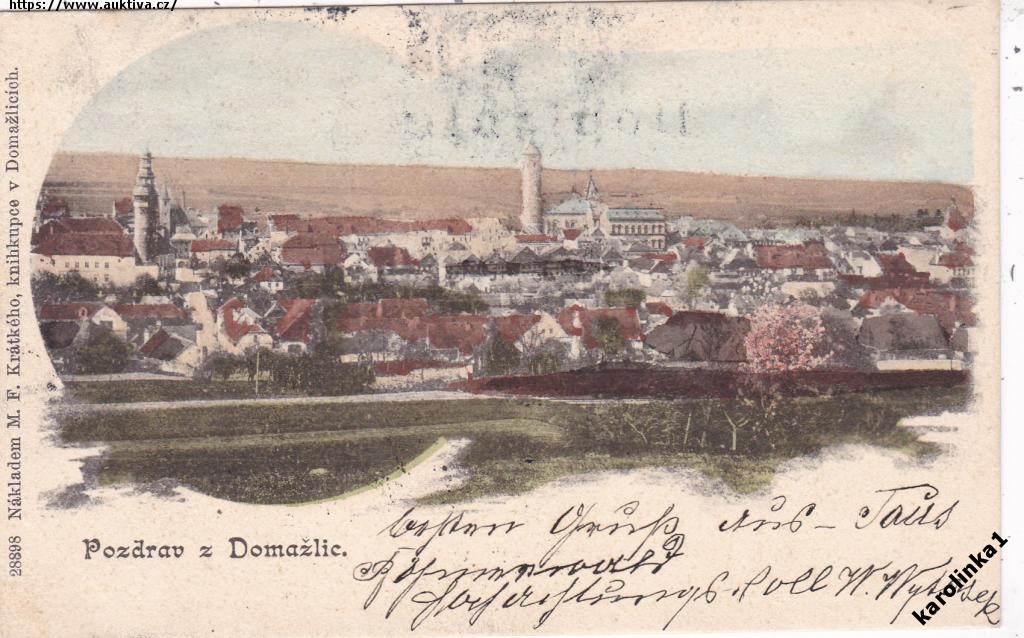 https://www.auktiva.cz/
28898 Nákladem M. F. Krátkého, knihkupce v Domažlicích.
Pozdrav z Domažlic.
besten Gruß aus - Taus
Böhmerwald
Hochachtungsvoll W.
karolinka1